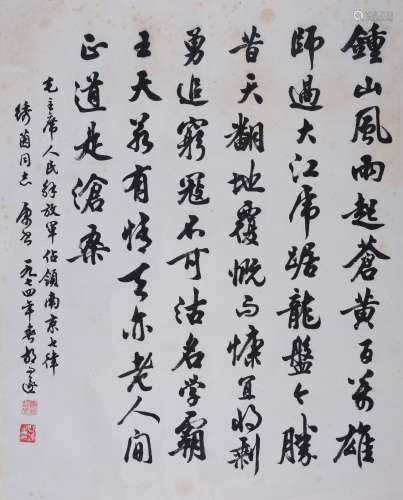 鍾山風雨起蒼黃百萬雄
師過大江虎踞龍盤今勝
昔天翻地覆慨而慷宜將剩
勇追窮寇不可沽名學霸
王天若有情天亦老人間
正道是滄桑
毛主席人民解放軍佔領南京七律
綺茵同志 屬書 一九七四年春